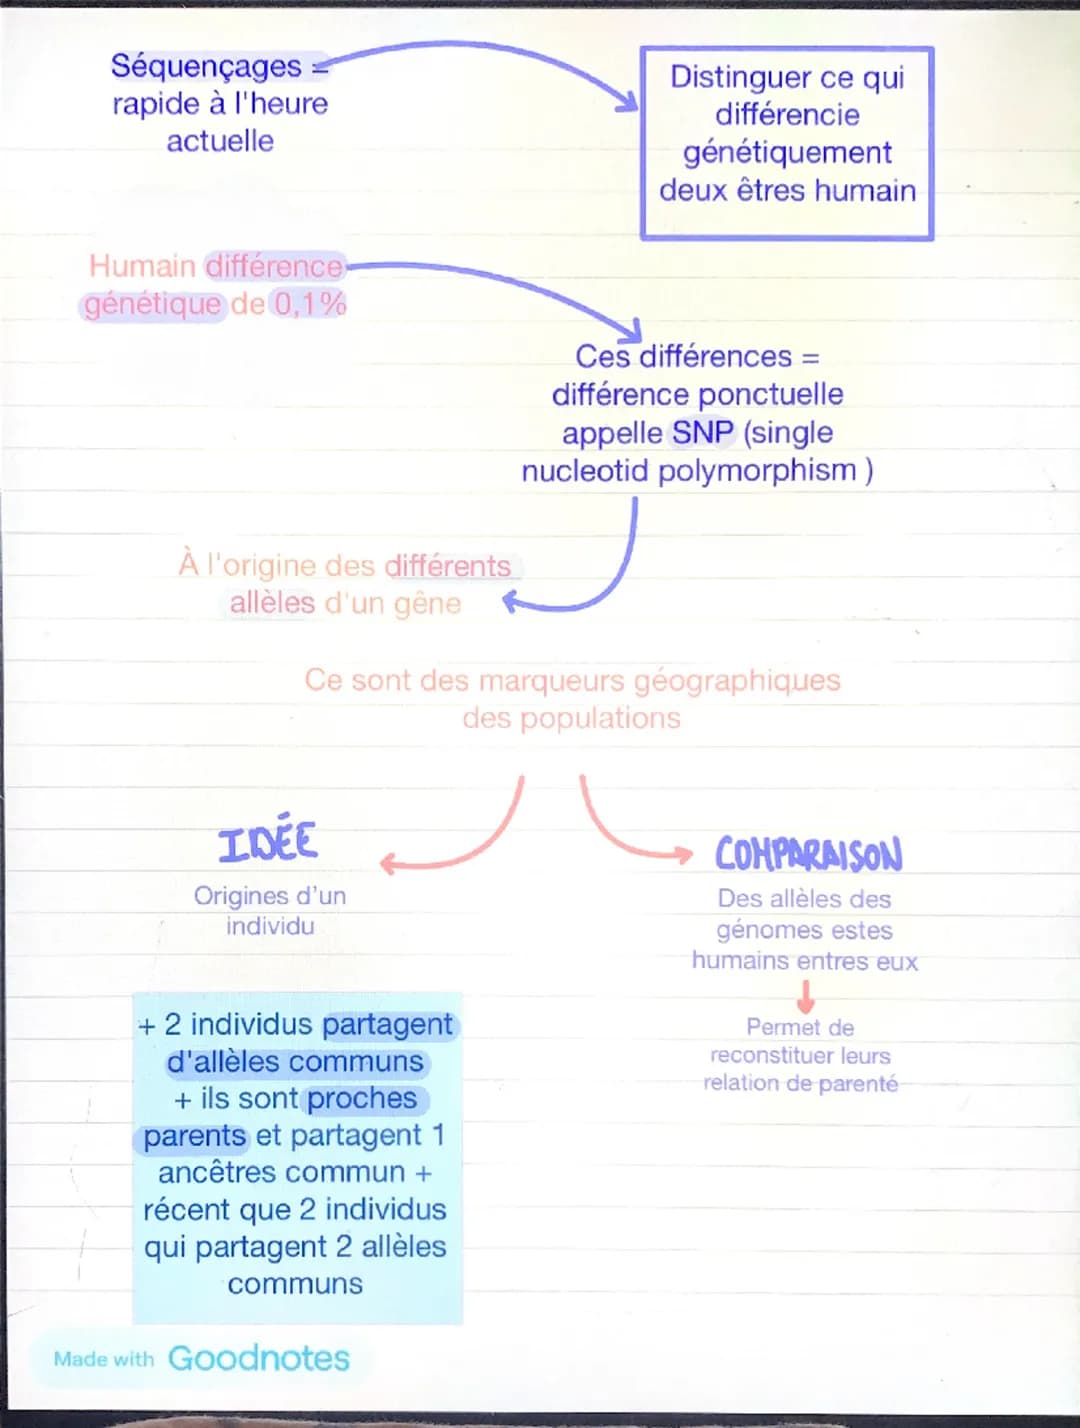 Séquençages =
rapide à l'heure
actuelle
Distinguer ce qui
différencie
génétiquement
deux êtres humain
Humain différence
génétique de 0,1%
Ces différences =
différence ponctuelle
appelle SNP (single
nucleotid polymorphism )
À l'origine des différents
allèles d'un gêne
Ce sont des marqueurs géographiques
des populations
IDÉE
Origines d'un
individu
+ 2 individus partagent
d'allèles communs
+ ils sont proches
parents et partagent 1
ancêtres commun +
récent que 2 individus
qui partagent 2 allèles
communs
COMPARAISON
Des allèles des
génomes estes
humains entres eux
Permet de
reconstituer leurs
relation de parenté
Made with Goodnotes